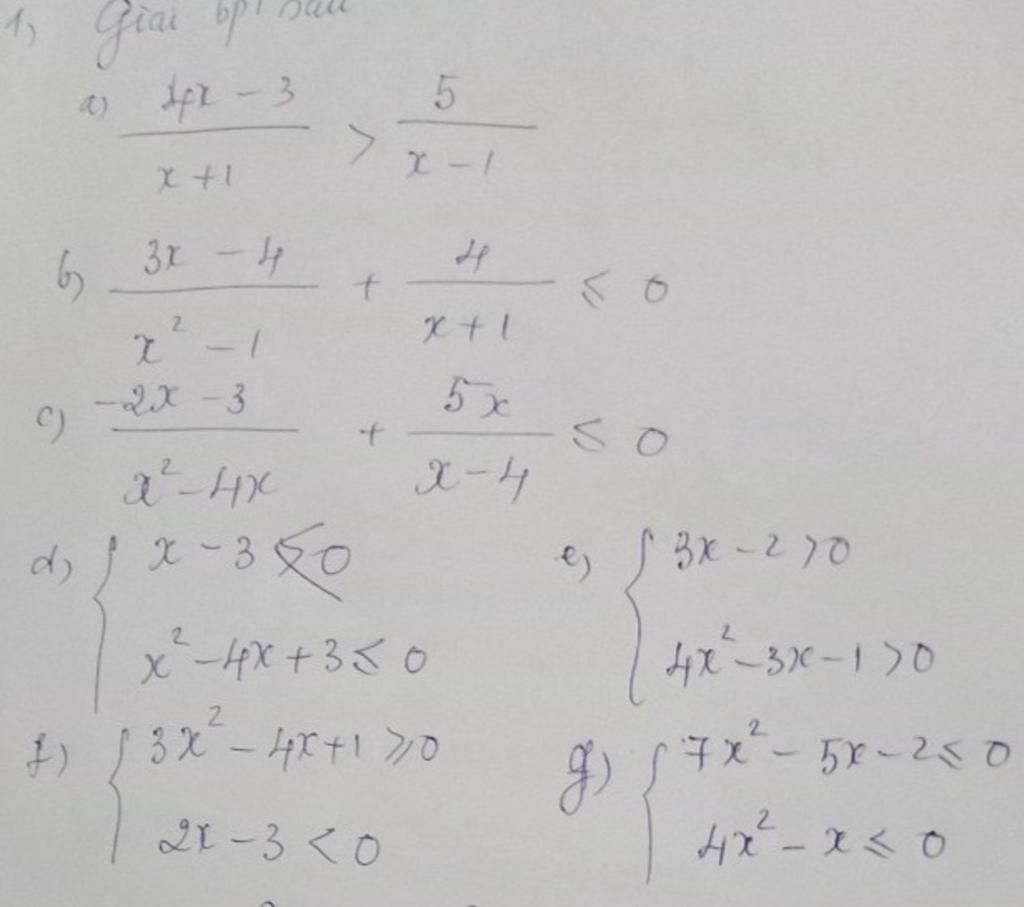 1, Giải bpt sau
a) \frac{4x - 3}{x + 1} > \frac{5}{x - 1}
b) \frac{3x - 4}{x^2 - 1} + \frac{4}{x + 1} ≤ 0
c) \frac{-2x - 3}{x^2 - 4x} + \frac{5x}{x - 4} ≤ 0
d) { x - 3 < 0
x^2 - 4x + 3 ≤ 0
e) { 3x - 2 > 0
4x^2 - 3x - 1 > 0
f) { 3x^2 - 4x + 1 ≥ 0
2x - 3 < 0
g) { 7x^2 - 5x - 2 ≤ 0
4x^2 - x ≤ 0